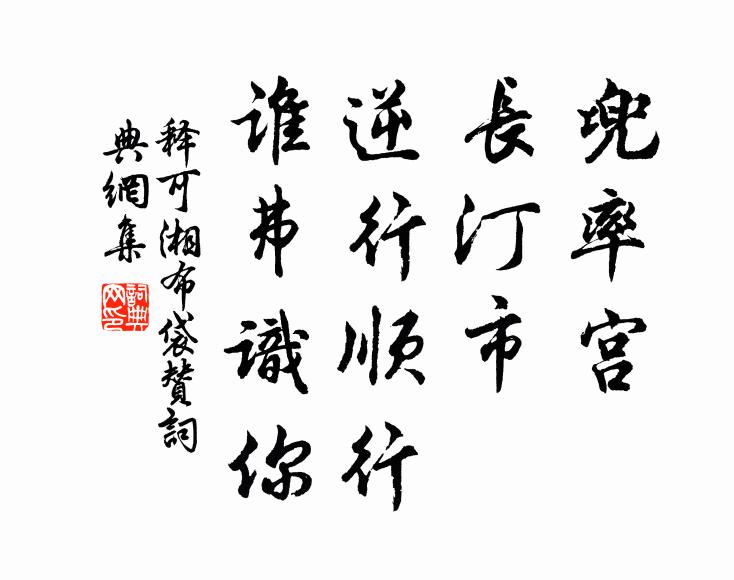 兜率宫
長汀市
逆行順行
谁弗識你
释可湘布袋赞詞
典網集
詞典网印